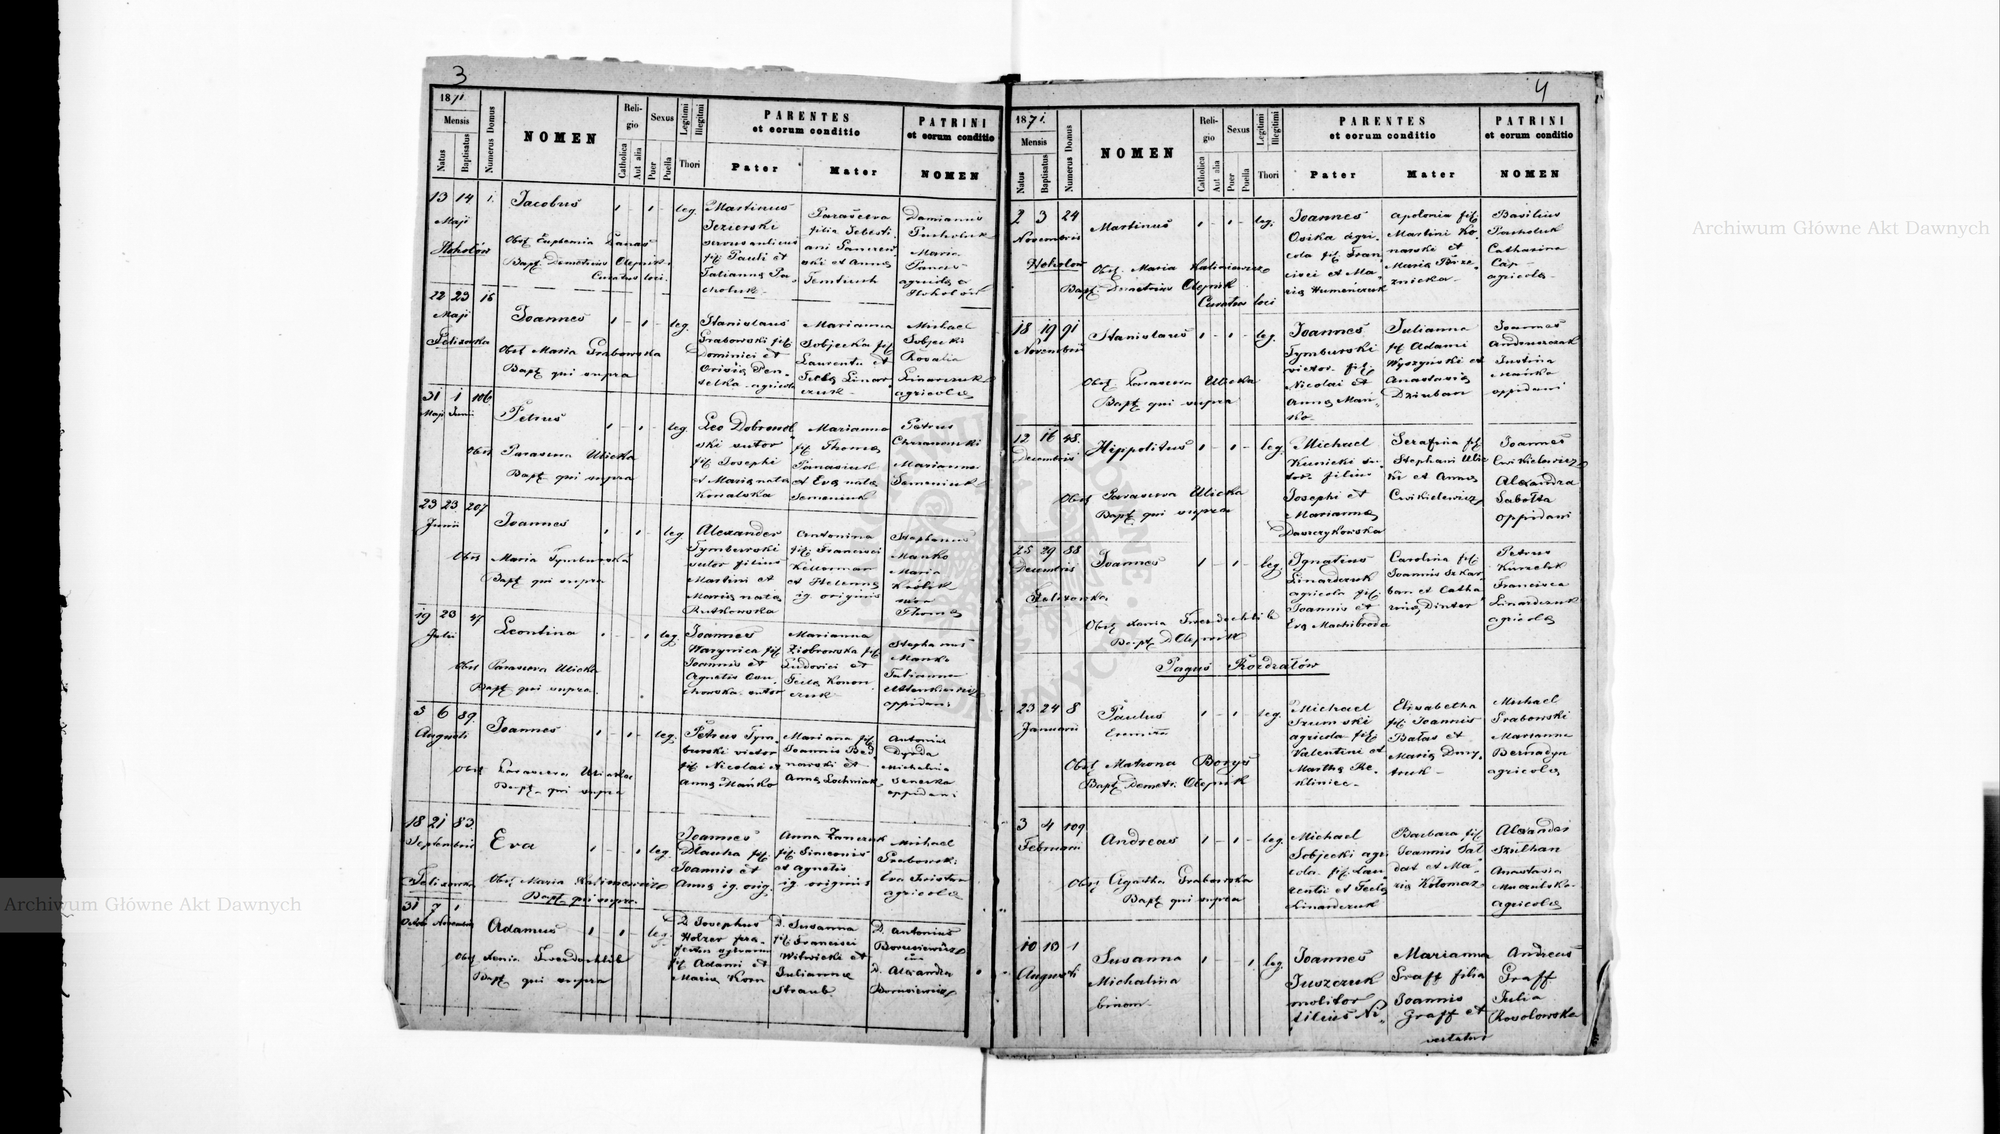 3
1871.
Mensis
Natus
Baptisatus
Numerus Domus
NOMEN
Religio
Catholica
Aut alia
Sexus
Puer
Puella
Legitimi
Illegitimi
Thori
PARENTES
et eorum conditio
Pater
Mater
PATRINI
et eorum conditio
NOMEN
13 14 1.
Maji
Hoholów
Jacobus
Obst Euphemia Panas
Bapt Demetrius Olejnik
Curatus loci.
1 - 1 - leg.
Martinus
Jezierski
fil Pauli et
Tatianna Pa-
choluk
Parasceva
filia Sebasti-
ani
ski et Anna
Damianus
Pacholuk
Maria
Panas
agricola
Hoholów
22 23 16
Maji
Joannes
Obst Maria Grabowska
Bapt qui supra
1 - 1 - leg.
Stanislaus
Grabowski fil
Dominici et
agricola
Marianna
Sobjecka fil
Laurentii et
Tecla Linar-
czuk
Michael
Sobjecki
Rosalia
Linarczuk
agricola
31 1 106
Maji Junii
Petrus
Obst Parasceva Ulicka
Bapt qui supra
1 - 1 - leg
Leo Dobrowol-
ski sutor
fil Josephi
et Maria nata
Kowalska
Marianna
fil Thoma
Panasiuk
et Eva nata
Semeniuk
Petrus
Marianna
Semeniuk
23 23 207
Junii
Joannes
Obst Maria Tymburska
Bapt qui supra
1 - 1 - leg
Alexander
Tymburski
sutor filius
Martini et
Maria nata
Rutkowska
Antonina
fil Francisci
Kellerman
et Helenna
ig. originis
Stephanus
Mańko
Maria
Thoma
19 23 47
Julii
Leontina
Obst Parasceva Ulicka
Bapt qui supra
1 - - 1 leg.
Joannes
Warynica fil
Joannis et
Agnetis
sutor
Marianna
Ziobrowska fil
Ludovici et
Tecla Konon-
czuk
Stephanus
Mańko
Julianna
oppidani
5 6 89.
Augusti
Joannes
Obst Parasceva Ulicka
Bapt qui supra
1 - 1 - leg.
Petrus Tym-
burski victor
fil Nicolai et
Anna Mańko
Mariana fil
Joannis Bed-
narski et
Anna Lochniak
Antonius
Dynda
Michalina
oppidani
18 21 83.
Septembris
Eva
Obst Maria Kaliniewicz
Bapt qui supra
1 - - 1 leg.
Joannes
fil
Joannis et
Anna ig. orig.
Anna Zanczuk
fil Simeonis
et Agnetis
ig. originis
Michael
Grabowski
Eva
agricola
31 7 1
Octob Novembris
Adamus
Obst Xenia Twerdochlib
Bapt qui supra
1 - 1 - leg.
D. Josephus
Holzer
fil Adami et
Maria Korn
D. Susanna
fil Francisci
Witwicki et
Julianna
Straub
D. Antonius
Borusiewicz
D. Alexandra
Borusiewicz
4
1871.
Mensis
Natus
Baptisatus
Numerus Domus
NOMEN
Religio
Catholica
Aut alia
Sexus
Puer
Puella
Legitimi
Illegitimi
Thori
PARENTES
et eorum conditio
Pater
Mater
PATRINI
et eorum conditio
NOMEN
2 3 24
Novembris
Hoholów
Martinus
Obst. Maria Kaliniewicz
Bapt. Dmetrius Olejnik
Curatus loci
1 - 1 - leg.
Joannes
Osika agri-
cola fil Fran-
cisci et Ma-
ria Humeńczuk
Apolonia fil
Martini Ko-
narski et
Maria
Basilius
Pacholuk
Catharina
Cap
agricola
18 19 91
Novembris
Stanislaus
Obst. Parasceva Ulicka
Bapt qui supra
1 - 1 - leg.
Joannes
Tymburski
victor fil
Nicolai et
Anna Mań-
ko.
Julianna
fil Adami
Wyszyński et
Anastasia
Dziuban
Joannes
Andruszczak
Justina
Mańko
oppidani
12 16 48.
Decembris
Hippolitus
Obst Parasceva Ulicka
Bapt qui supra
1 - 1 - leg.
Michael
Kunicki su-
tor filius
Josephi et
Marianna
Daszczykowska
Serafina fil
Stephani Ulic-
ki et Anna
Cwikielewicz
Joannes
Cwikielewicz
Alexandra
Sabołta
oppidani
25 29 88
Decembris
Joannes
Obst Xenia Twerdochlib
Bapt D Olejnik
1 - 1 - leg.
Ignatius
Linardczuk
agricola fil
Joannis et
Eva Machibroda
Carolina fil
Joannis Szkar-
ban et Catha-
rina Dinter
Petrus
Kinzelek
Francisca
Linardczuk
agricola
Pagus Rozdzalów
23 24 8
Januarii
Paulus
Obst Matrona Borys
Bapt Demetr. Olejnik
1 - 1 - leg.
Michael
Szumski
agricola fil
Valentini et
Martha Re-
kliniec
Elisabetha
fil Joannis
Bałas et
Maria Dmy-
truk
Michael
Grabowski
Marianna
Bernadyn
agricola
3 4 109
Februarii
Andreas
Obst Agatha Grabowska
Bapt qui supra
1 - 1 - leg.
Michael
Sobjecki agri-
cola fil Lau-
rentii et Tecla
Linardczuk
Barbara fil
Joannis Sał-
dat et Ma-
ria Kołomaz
Alexander
Szulhan
Anastasia
agricola
10 13 1
Augusti
Susanna
Michalina
binom.
1 - - 1 leg.
Joannes
Juszczuk
molitor
filius Ni-
Marianna
Graff filia
Joannis
Graff et
Andreas
Graff
Julia
Kosolowska
vertatur
Archiwum Główne Akt Dawnych
Archiwum Główne Akt Dawnych